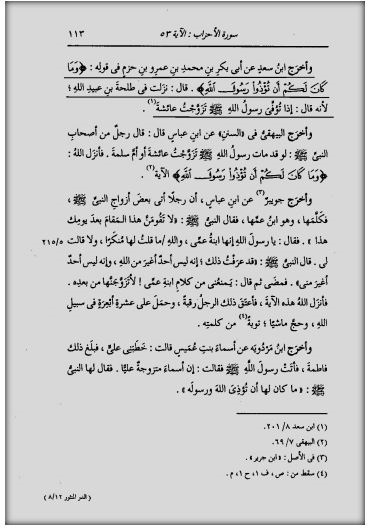 سورة الأحزاب : الآية ٥٣ ١١٣
وأخرَج ابنُ سعدٍ عن أبى بكرِ بنِ محمدِ بنِ عمرِو بنِ حزمٍ فى قولِه : ﴿وَمَا
كَانَ لَكُمْ أَن تُؤْذُوا رَسُولَ اللَّهِ﴾ . قال : نزَلت فى طلحةَ بنِ عبيدِ اللهِ ؛
لأنه قال : إذا تُوُفِّىَ رسولُ اللهِ ﷺ تزَوَّجْتُ عائشةَ(١) .
وأخرَج البيهقىُّ فى «السننِ» عن ابنِ عباسٍ قال : قال رجلٌ من أصحابِ
النبىِّ ﷺ : لو قد مات رسولُ اللهِ ﷺ تزَوَّجْتُ عائشةَ أو أمَّ سلمةَ . فأنزَل اللهُ :
﴿وَمَا كَانَ لَكُمْ أَن تُؤْذُوا رَسُولَ اللَّهِ﴾ الآية(٢) .
وأخرَج جويبرٌ(٣) عن ابنِ عباسٍ ، أن رجلًا أتى بعضَ أزواجِ النبىِّ ﷺ ،
فكلَّمها ، وهو ابنُ عمِّها ، فقال النبىُّ ﷺ : «لا تَقُومَنَّ هذا المقامَ بعدَ يومِك
هذا» . فقال : يا رسولَ اللهِ إنها ابنةُ عمِّى ، واللهِ ما قلتُ لها مُنكَرًا ، ولا قالت ٢١٥/٥
لى . قال النبىُّ ﷺ : «قد عرَفْتُ ذلك ؛ إنه ليس أحدٌ أغيرَ من اللهِ ، وإنه ليس أحدٌ
أغيرَ منى» . فمضَى ثم قال : يَمنعُنى من كلامِ ابنةِ عمِّى ! لأتزَوَّجَنَّها من بعدِه .
فأنزَل اللهُ هذه الآيةَ ، فأعتَق ذلك الرجلُ رقبةً ، وحمَل على عشرةِ أبْعِرةٍ فى سبيلِ
اللهِ ، وحجَّ ماشيًا ؛ توبةً(٤) من كلمتِه .
وأخرَج ابنُ مَرْدُويَه عن أسماءَ بنتِ عُمَيسٍ قالت : خطَبنِى علىٌّ ، فبلَغ ذلك
فاطمةَ ، فأتَتْ رسولَ اللَّهِ ﷺ فقالت : إن أسماءَ متزوجةٌ عليًّا . فقال لها النبىُّ
ﷺ : «ما كان لها أن تُؤْذِىَ اللهَ ورسولَه» .
(١) ابن سعد ٢٠١/٨ .
(٢) البيهقى ٦٩/٧ .
(٣) فى الأصل : «ابن جرير» .
(٤) سقط من : ص ، ف ١ ، ح ١ ، م .
( الدر المنثور ٨/١٢ )